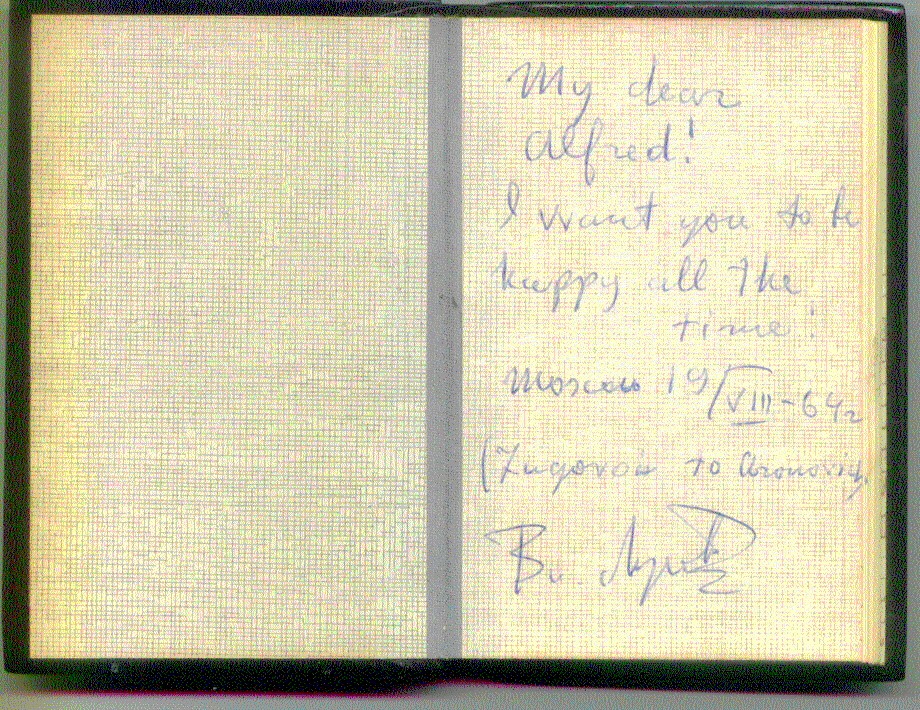 My dear
Alfred!
I want you to be
happy all the
time!
Moscow 19/VIII-64г
( to Aronovich)
В.